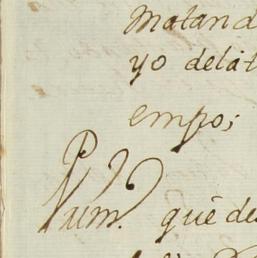 matand
yo delat
empo;
que de